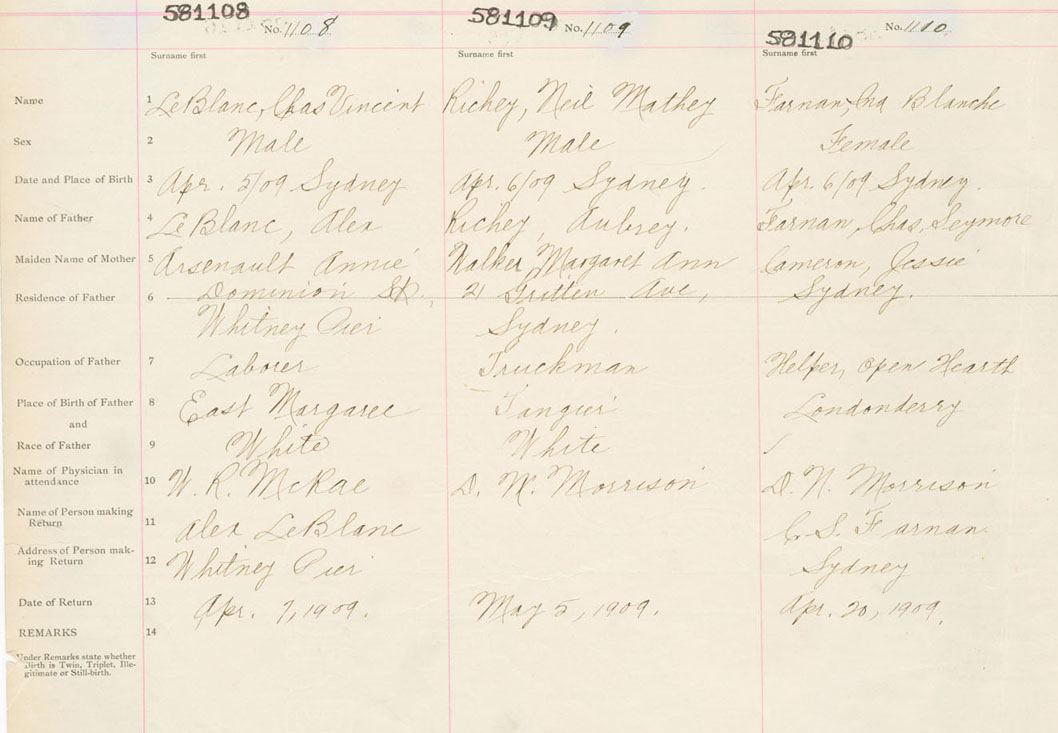 581108 581109 581110
No. 1108 No. 1109 No. 1110
Surname first Surname first Surname first
Name 1 LeBlanc, Chas Vincent Richey, Neil Mathey Farnan, Ina Blanche
Sex 2 Male Male Female
Date and Place of Birth 3 Apr. 5/09 Sydney Apr. 6/09 Sydney. Apr. 6/09 Sydney.
Name of Father 4 LeBlanc, Alex Richey, Aubrey. Farnan, Chas, Seymore
Maiden Name of Mother 5 Arsenault Annie Walker, Margaret Ann Cameron, Jessie
Residence of Father 6 Dominion St., 21 Ave, Sydney.
Whitney Pier Sydney.
Occupation of Father 7 Laborer Truckman Helper, Open Hearth
Place of Birth of Father 8 East Margaree Tangier Londonderry
and
Race of Father 9 White White
Name of Physician in
attendance 10 W. R. McRae D. N. Morrison D. N. Morrison
Name of Person making
Return 11 Alex LeBlanc C. S. Farnan.
Address of Person mak-
ing Return 12 Whitney Pier Sydney
Date of Return 13 Apr. 7, 1909. May 5, 1909. Apr. 20, 1909.
REMARKS 14
Under Remarks state whether
Birth is Twin, Triplet, Ille-
gitimate or Still-birth.